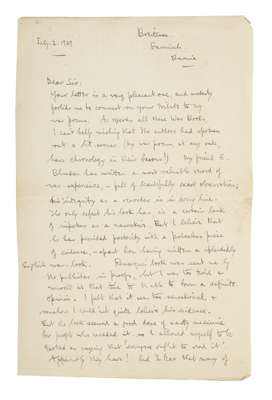 July 2. 1929
Dear Sir,
Your letter is a very pleasant one, and modestly
forbids me to comment on your tribute to my
war poems. As regards all these War Books,
I can't help wishing that the authors had spoken
out a bit sooner. (My war poems, at any rate,
have chronology in their favour!) My friend E.
Blunden has written a most valuable record of
war-experience, – full of beautifully exact observation;
his integrity as a recorder is in every line.
The only defect his book has is a certain lack
of as a narrative. But I believe that
he has provided posterity with a priceless piece
of evidence, – apart from having written a splendidly
English war book. Remarque's book was sent me by
the publisher in proofs, but I was too tired &
at that time to be able to form a definite
opinion. I felt that it was too sensational, &
somehow I could not quite believe his evidence.
But the book seemed a good dose of nasty medicine
for people who needed it. – so I allowed myself to be
quoted as saying that 'everyone ought to read it'.
Apparently they have! And I fear that many of